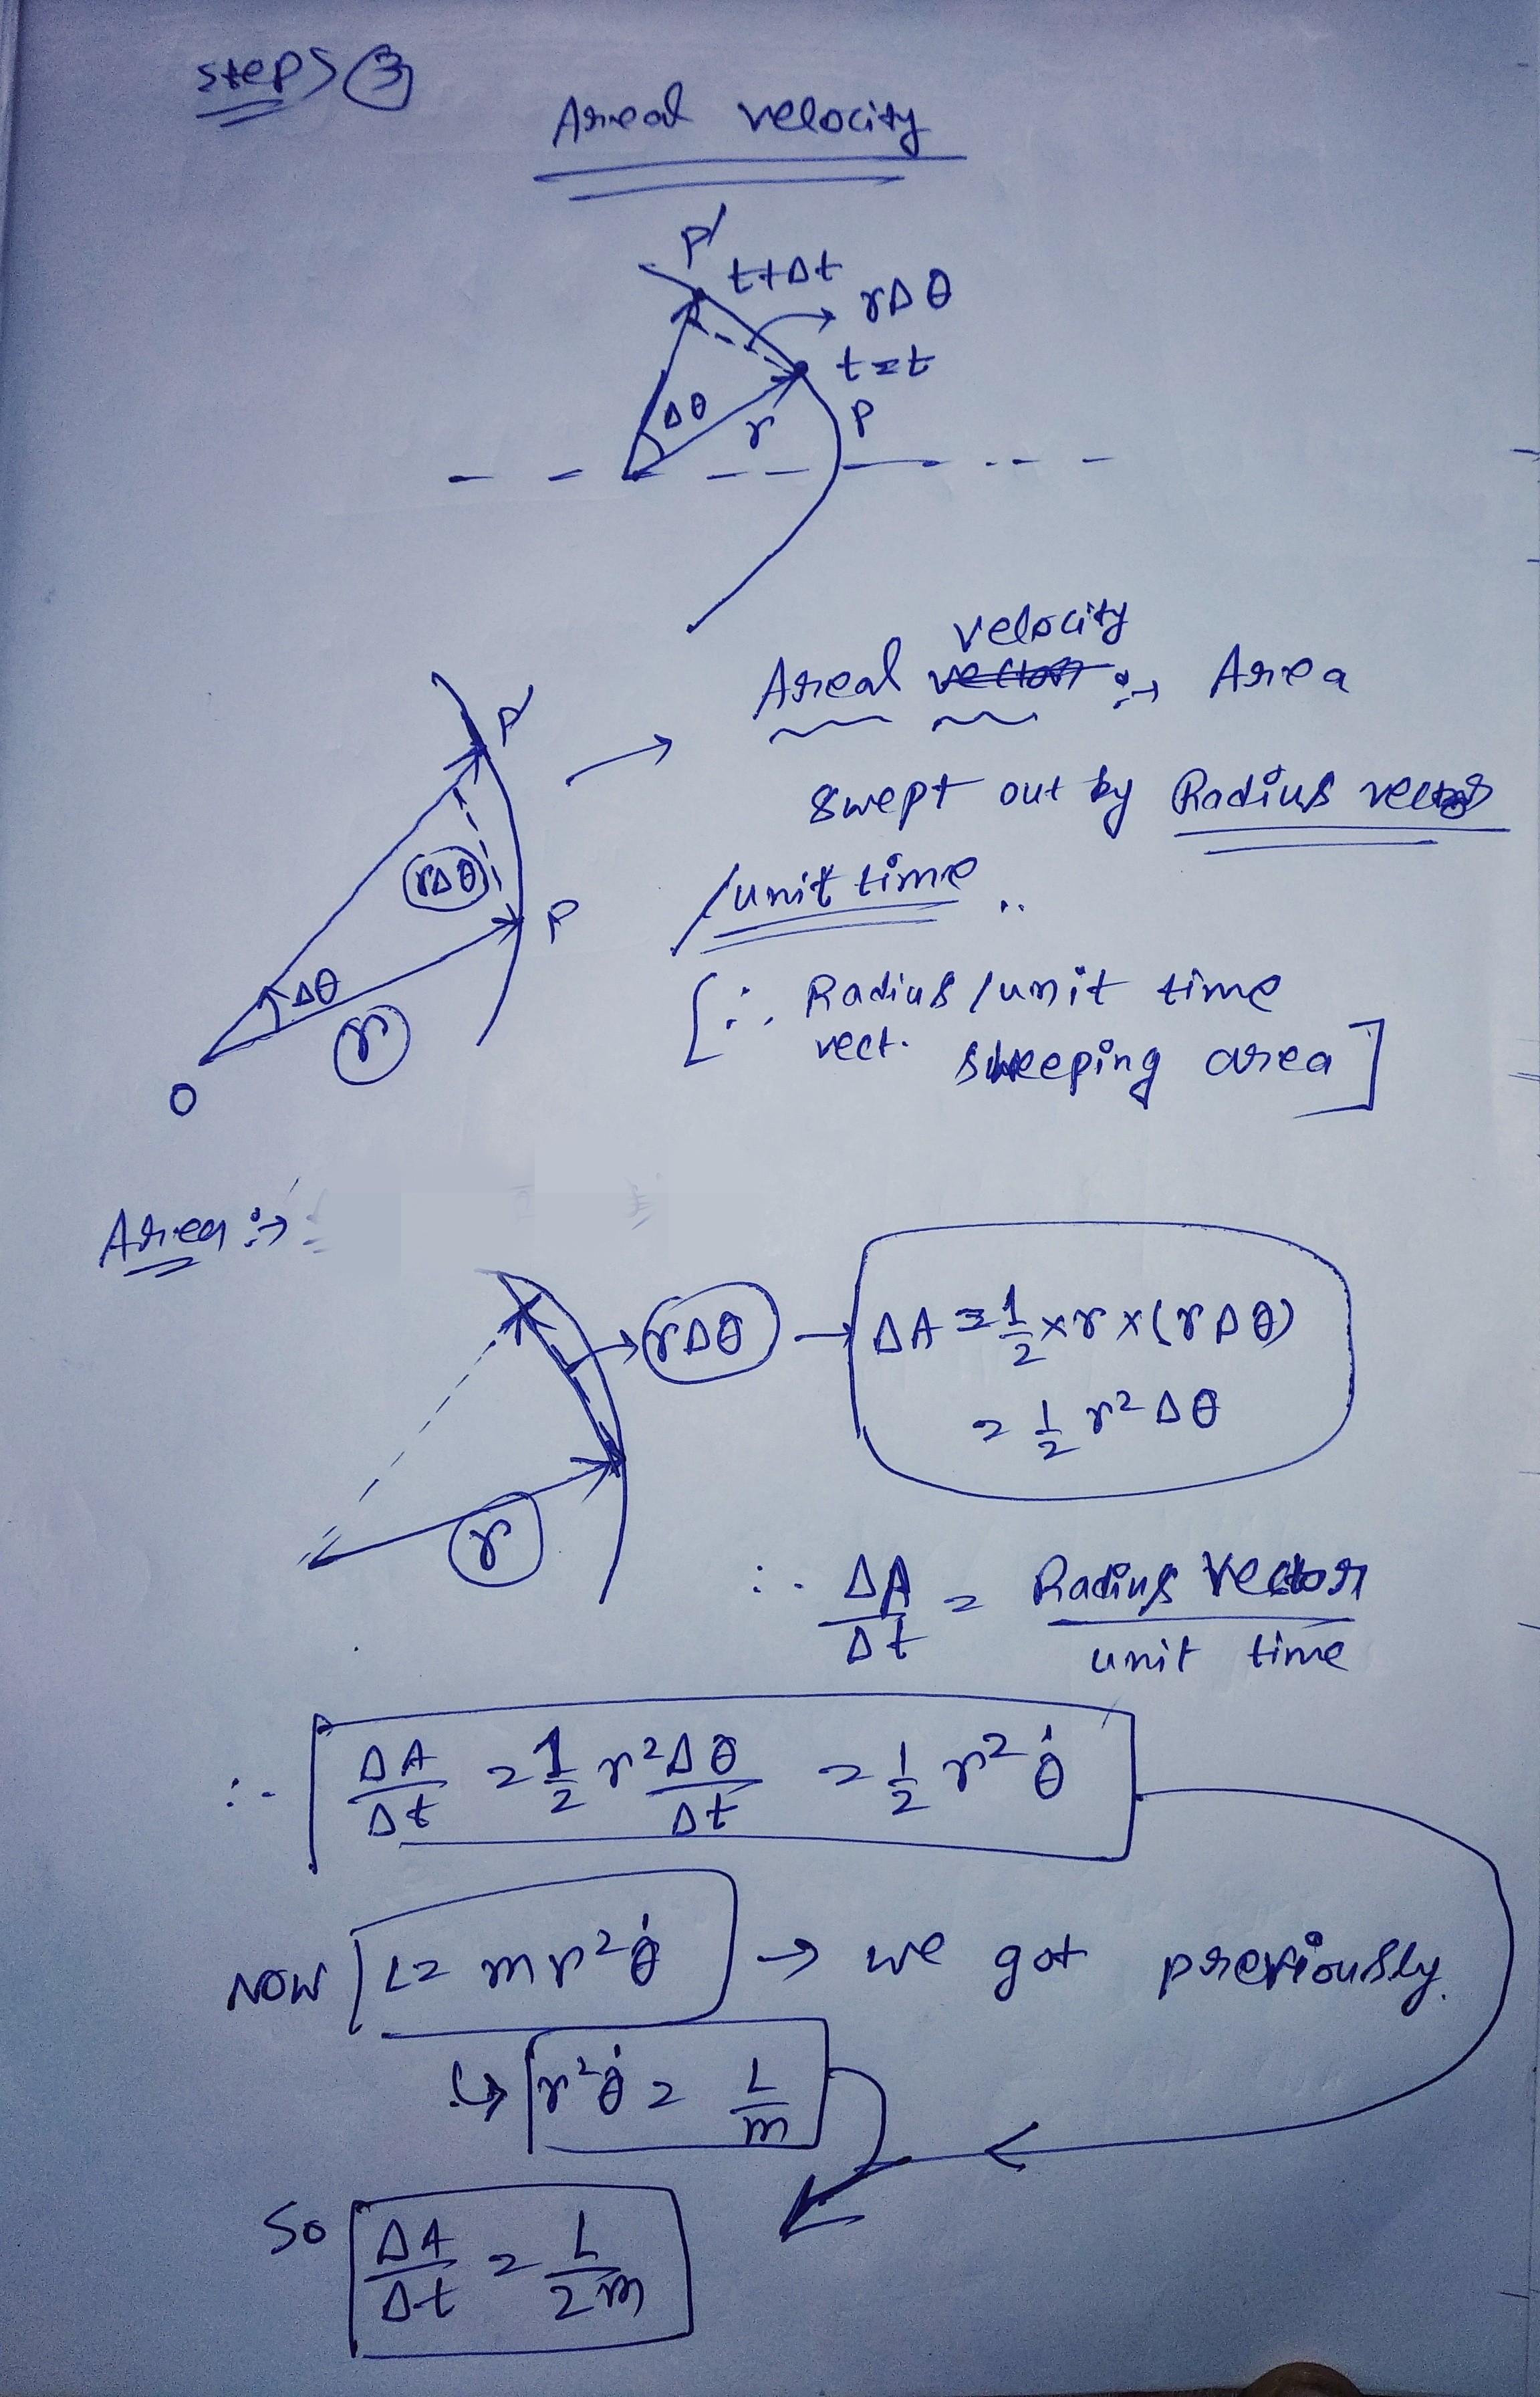 steps ③
Areal velocity
P'
t+Δt
rΔθ
t=t
Δθ
r
P
velocity
Areal vector :→ Area
swept out by Radius vector
/unit time ..
[∴ Radius /unit time
vect. sweeping area]
P'
rΔθ
P
Δθ
r
O
Area :→
rΔθ → ΔA = 1/2 × r × (rΔθ)
= 1/2 r² Δθ
r
∴ ΔA/Δt = Radius Vector / unit time
∴ ΔA/Δt = 1/2 r² Δθ/Δt = 1/2 r² θ̇
NOW L = mr²θ̇ → we got previously.
↳ r²θ̇ = L/m
So ΔA/Δt = L/2m